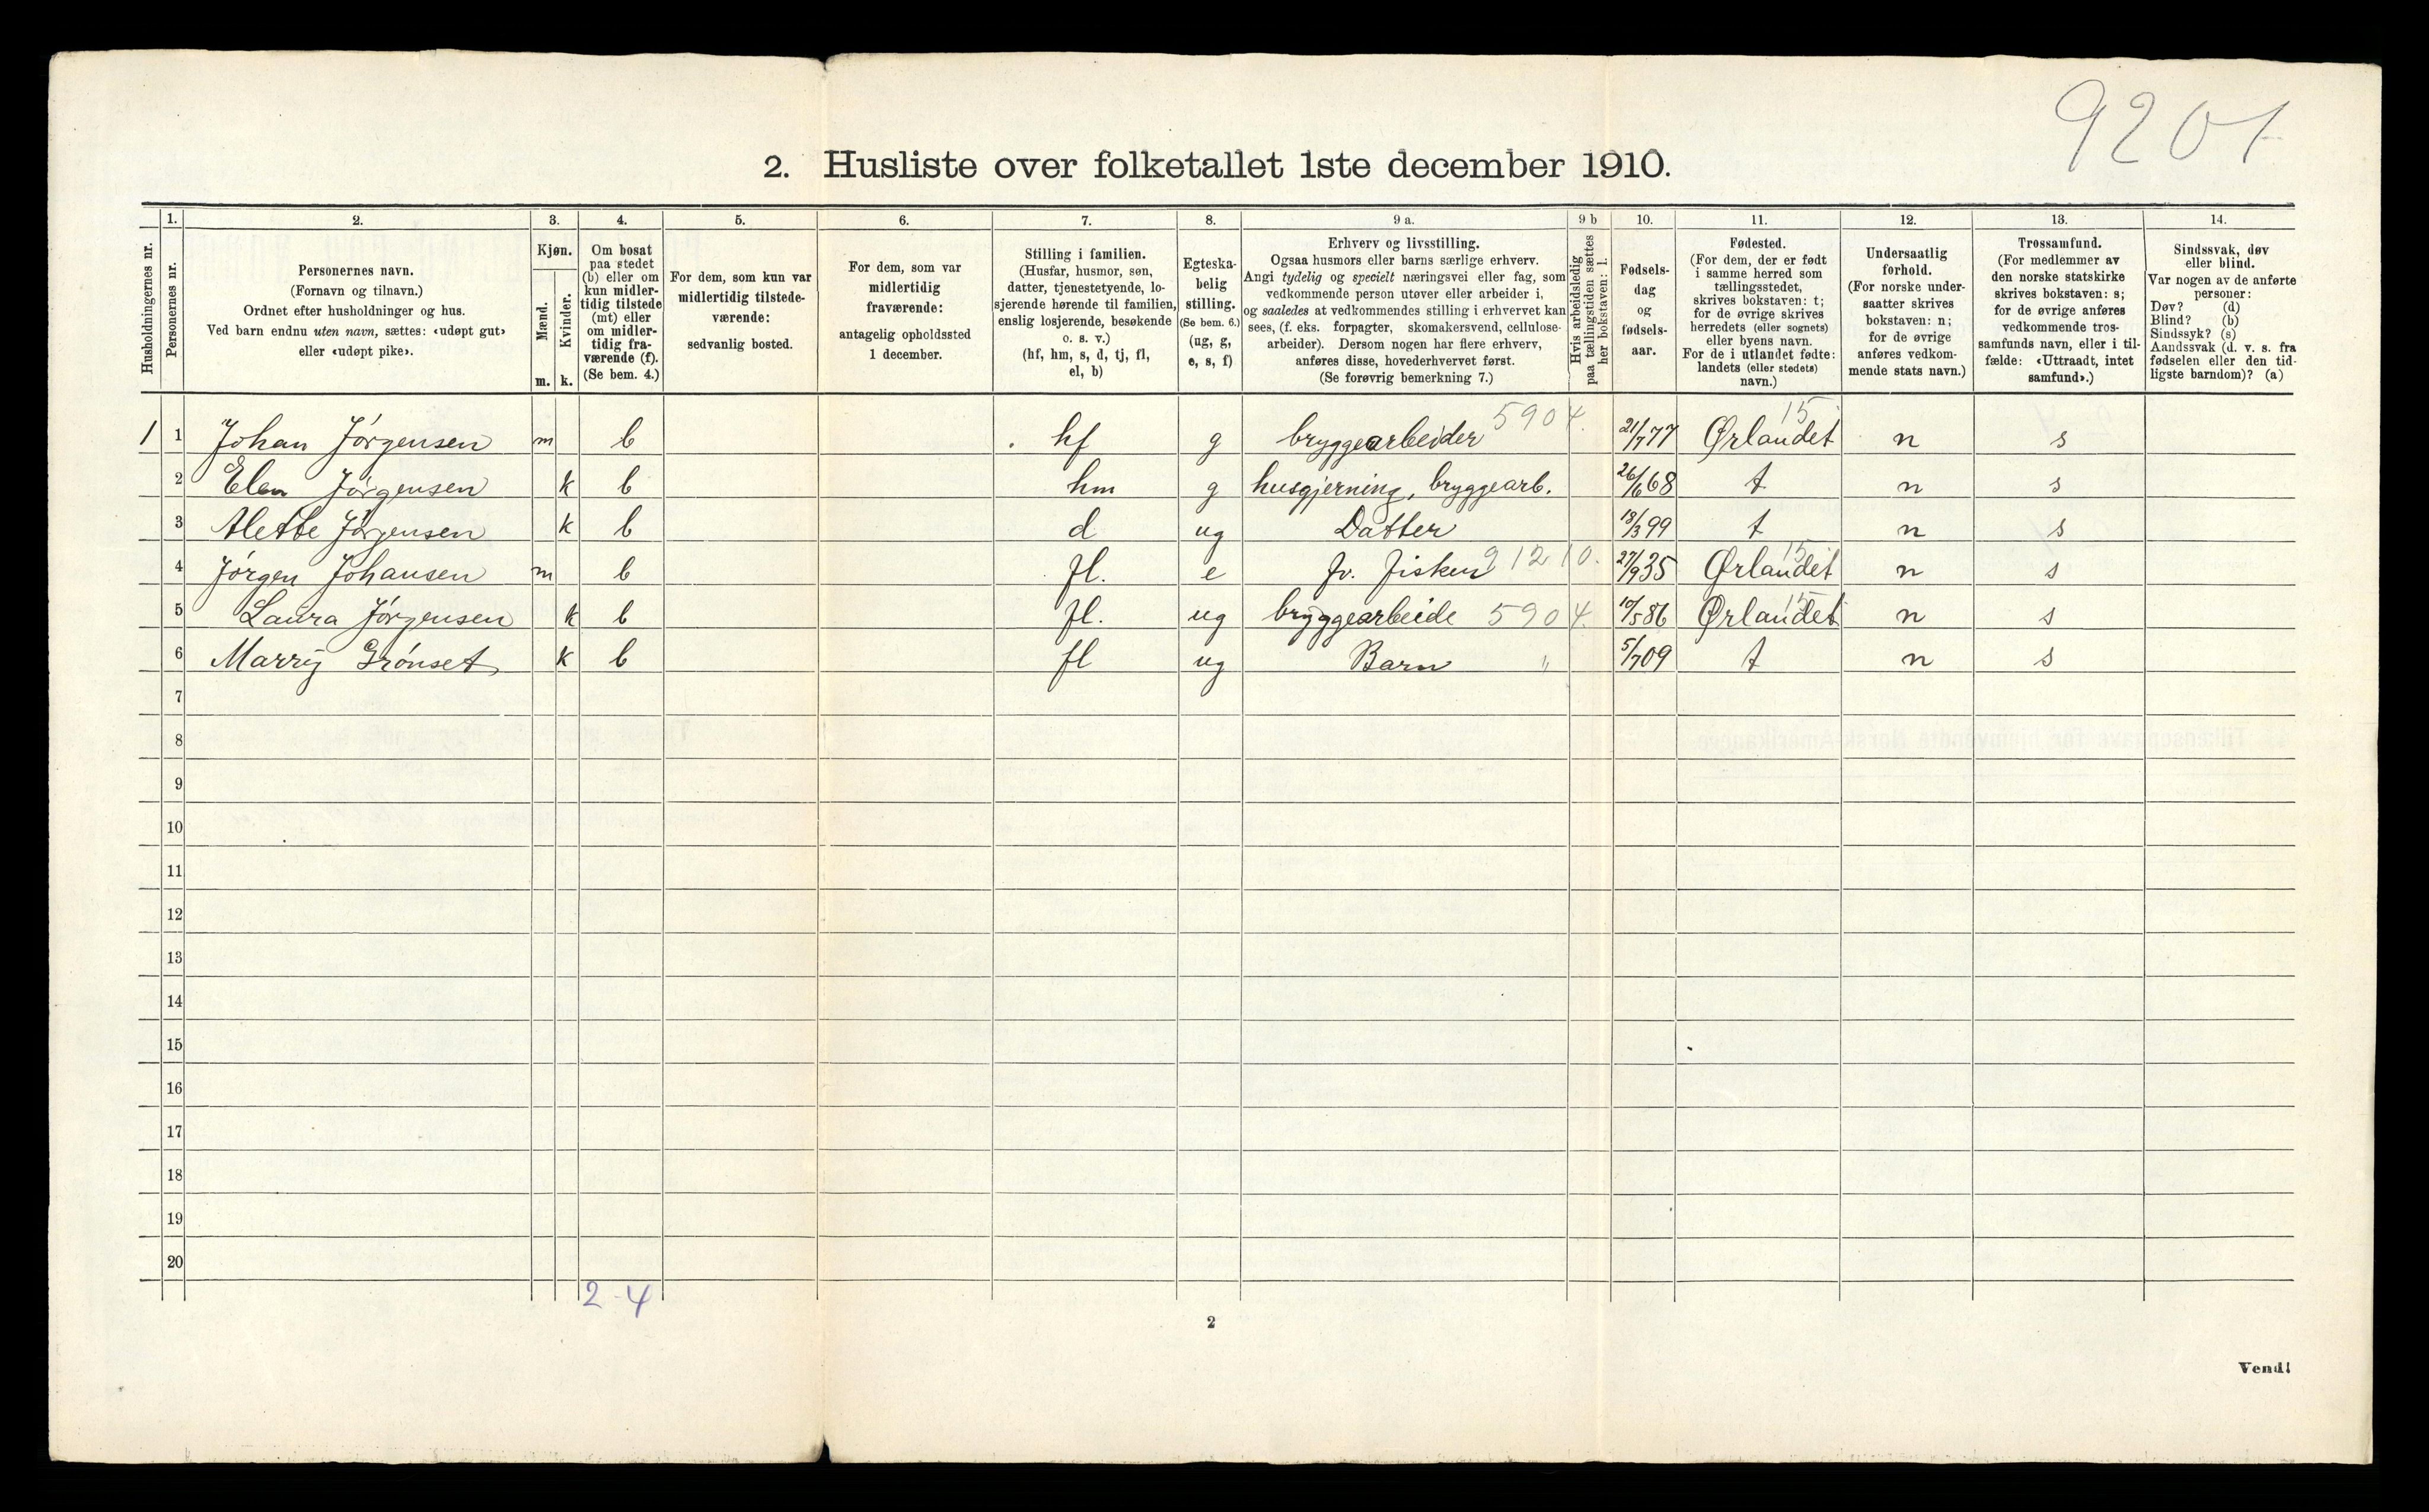 9201
2. Husliste over folketallet 1ste december 1910.
Husholdningernes nr.
1.
Personernes nr.
2.
Personernes navn.
(Fornavn og tilnavn.)
Ordnet efter husholdninger og hus.
Ved barn endnu uten navn, sættes: «udøpt gut»
eller «udøpt pike».
3.
Kjøn.
Mænd.
Kvinder.
m. k.
4.
Om bosat
paa stedet
(b) eller om
kun midler-
tidig tilstede
(mt) eller
om midler-
tidig fra-
værende (f).
(Se bem. 4.)
5.
For dem, som kun var
midlertidig tilstede-
værende:
sedvanlig bosted.
6.
For dem, som var
midlertidig
fraværende:
antagelig opholdssted
1 december.
7.
Stilling i familien.
(Husfar, husmor, søn,
datter, tjenestetyende, lo-
sjerende hørende til familien,
enslig losjerende, besøkende
o. s. v.)
(hf, hm, s, d, tj, fl,
el, b)
8.
Egteska-
belig
stilling.
(Se bem. 6.)
(ug, g,
e, s, f)
9 a.
Erhverv og livsstilling.
Ogsaa husmors eller barns særlige erhverv.
Angi tydelig og specielt næringsvei eller fag, som
vedkommende person utøver eller arbeider i,
og saaledes at vedkommendes stilling i erhvervet kan
sees, (f. eks. forpagter, skomakersvend, cellulose-
arbeider). Dersom nogen har flere erhverv,
anføres disse, hovederhvervet først.
(Se forøvrig bemerkning 7.)
9 b
Hvis arbeidsledig
paa tællingstiden sættes
her bokstaven: l.
10.
Fødsels-
dag
og
fødsels-
aar.
11.
Fødested.
(For dem, der er født
i samme herred som
tællingsstedet,
skrives bokstaven: t;
for de øvrige skrives
herredets (eller sognets)
eller byens navn.
For de i utlandet fødte:
landets (eller stedets)
navn.)
12.
Undersaatlig
forhold.
(For norske under-
saatter skrives
bokstaven: n;
for de øvrige
anføres vedkom-
mende stats navn.)
13.
Trossamfund.
(For medlemmer av
den norske statskirke
skrives bokstaven: s;
for de øvrige anføres
vedkommende tros-
samfunds navn, eller i til-
fælde: «Uttraadt, intet
samfund».)
14.
Sindssvak, døv
eller blind.
Var nogen av de anførte
personer:
Døv? (d)
Blind? (b)
Sindssyk? (s)
Aandssvak (d. v. s. fra
fødselen eller den tid-
ligste barndom)? (a)
1 1 Johan Jørgensen m b hf g bryggearbeider 5904. 21/7 77 Ørlandet 15 n s
2 Elen Jørgensen k b hm g husgjerning, bryggearb. 26/6 68 t n s
3 Alette Jørgensen k b d ug Datter 18/3 99 t n s
4 Jørgen Johansen m b fl. e fv. fisker 91210. 27/9 35 Ørlandet 15 n s
5 Laura Jørgensen k b fl. ug bryggearbeide 5904. 10/5 86 Ørlandet 15 n s
6 Marry Grønset k b fl ug Barn " 5/7 09 t n s
7
8
9
10
11
12
13
14
15
16
17
18
19
20
2-4
2
Vend!